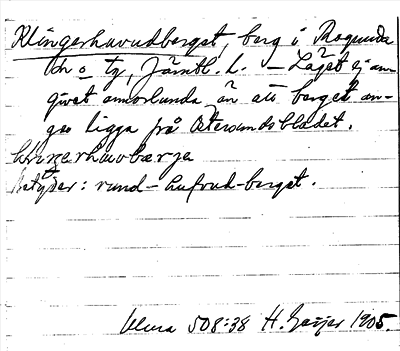 Klingerhuvudberget, berg i Ragunda
sn o tg, Jämtl. L. — Läget ej an-
givet annorlunda än att berget an-
ges ligga på Östersundsbladet.
klingerhuvbærje
Betyder: rund-hufvud-berget.
Ulma 508:38 H. Geijer 1905.